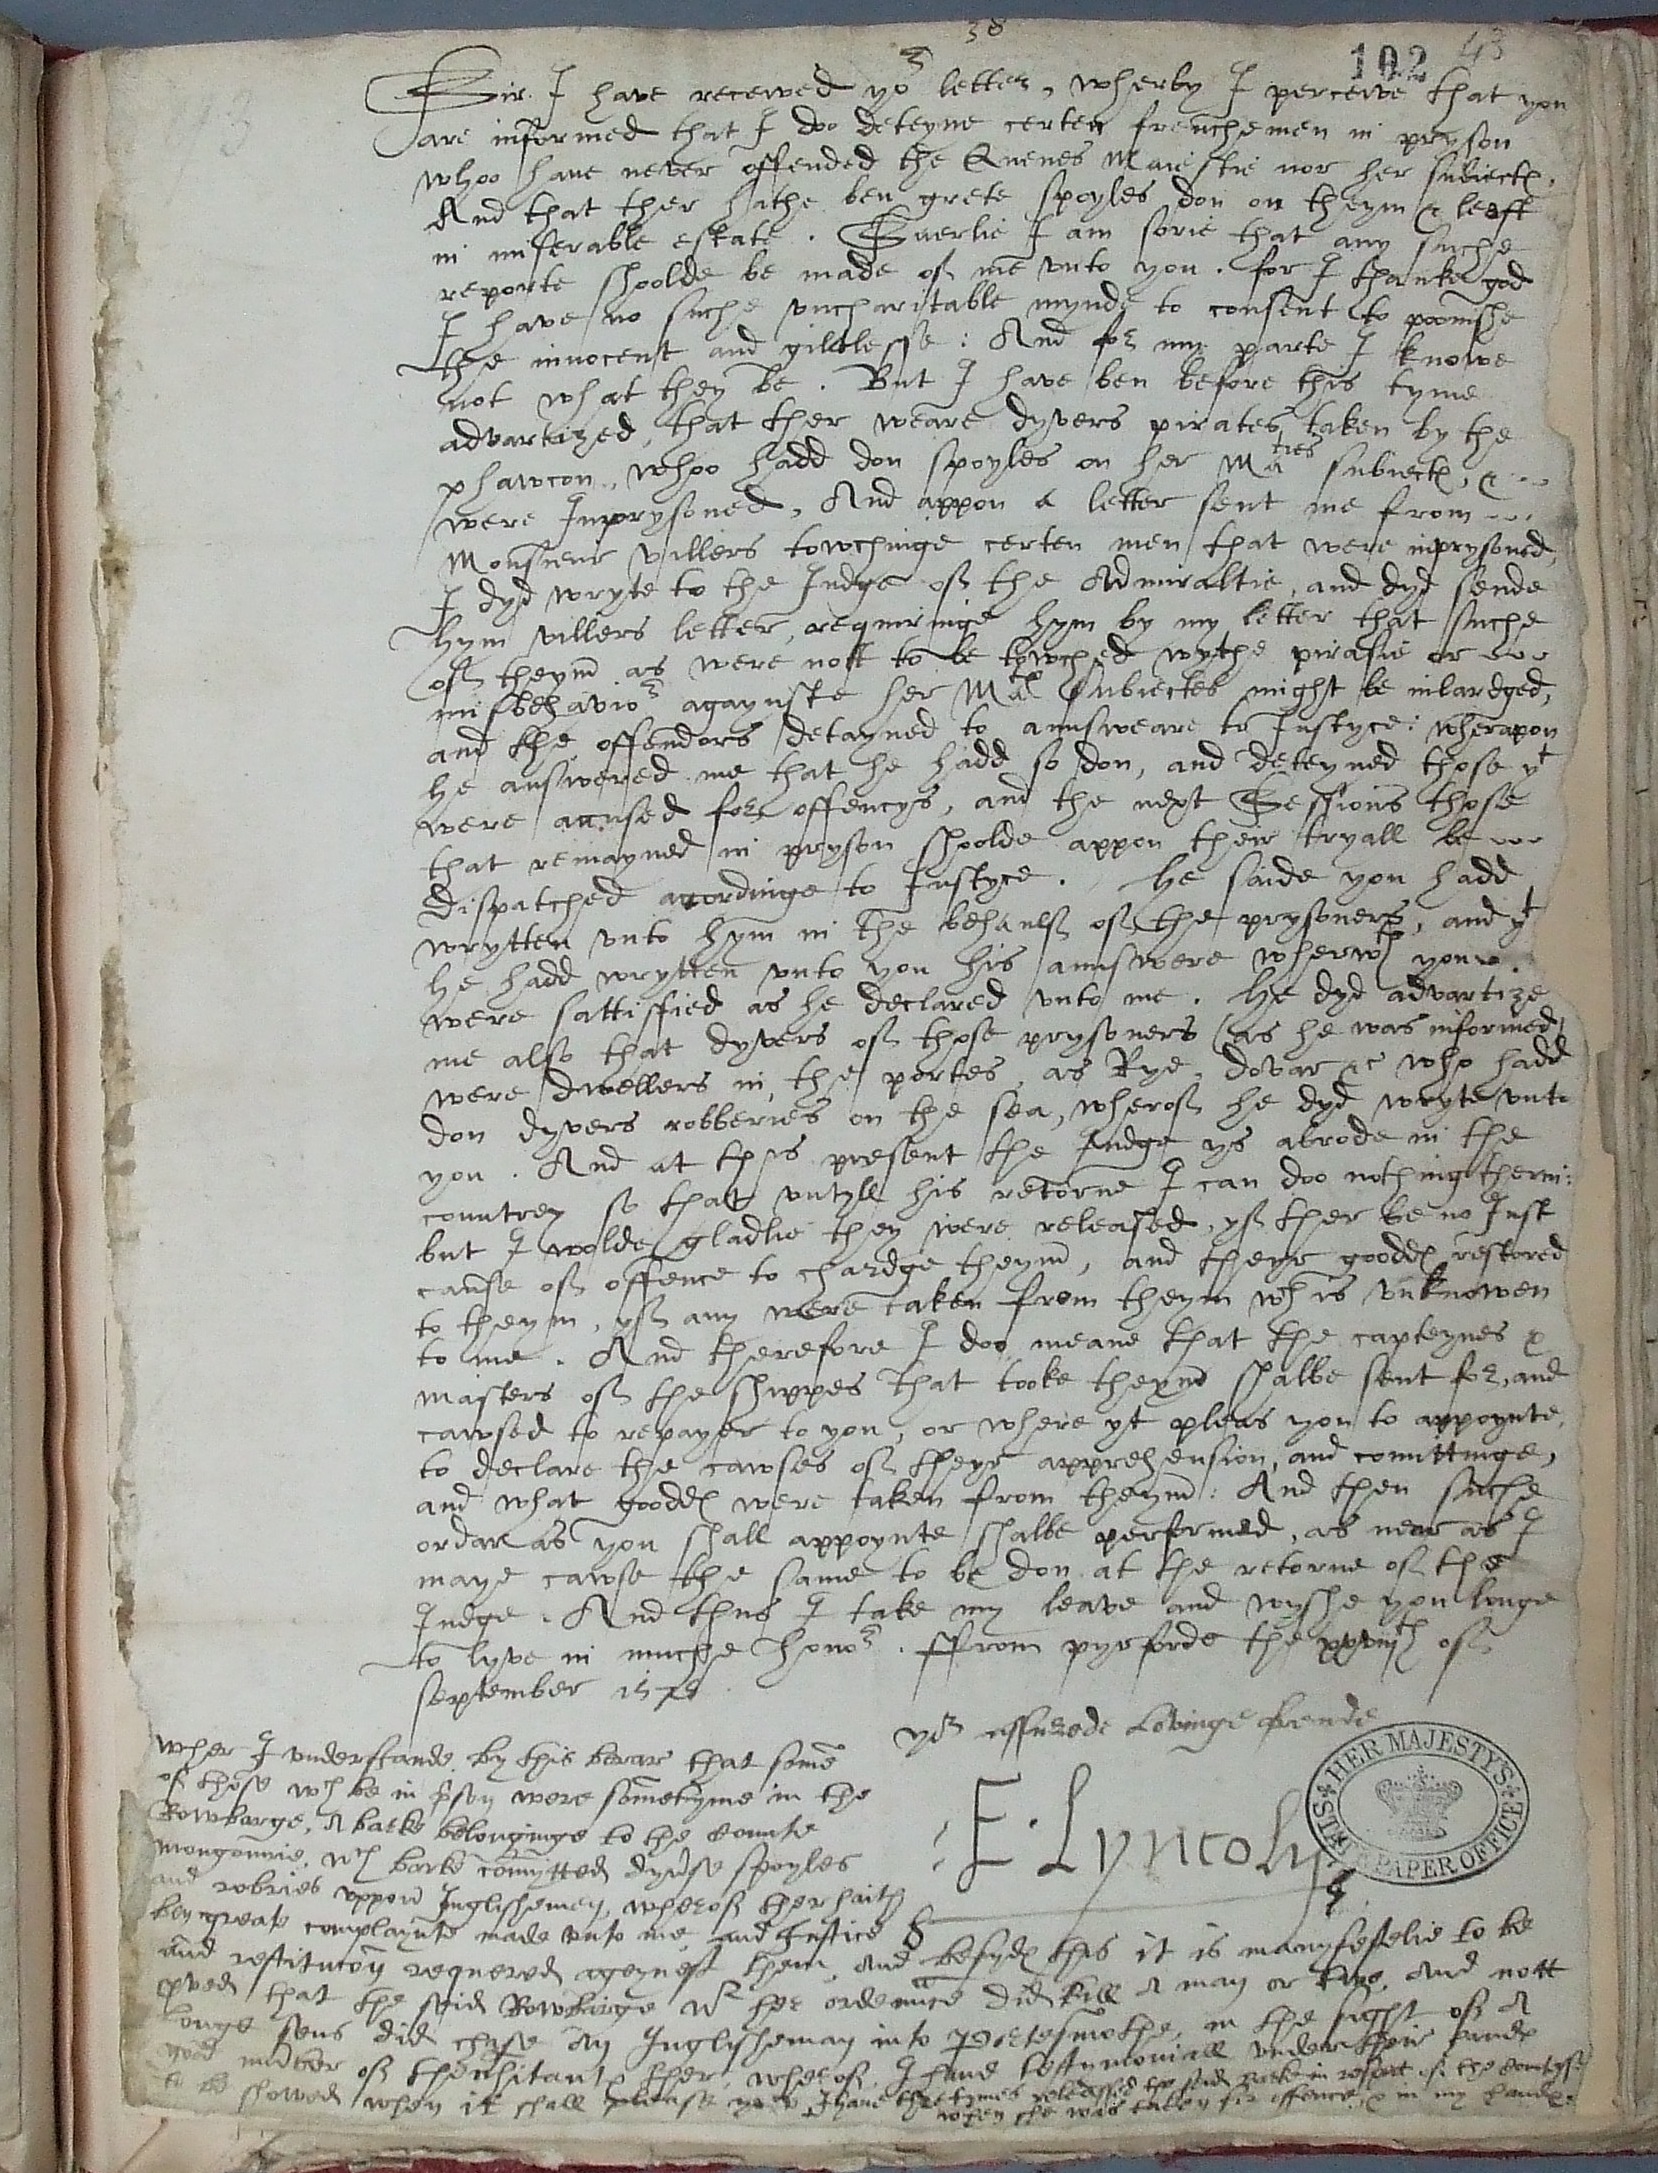 38
102 43
Sir. I have receiued yor letter, wherby I perceive that you
are informed that I doo deteyne certen frenchemen in pryson
whoo have never offended the Quenes Maiestie nor her subiectes,
And that ther hathe ben grete spoyles don on theym & leaft
in miserable estate. Suerlie I am sorie that any suche
reporte shoolde be made of me vnto you. for I thanke god
I have no suche vncharitable mynde to consent to poonishe
the innocent and giltlesse: And for my parte I knowe
not what they be. But I have ben before this tyme
advartized, that ther weare dyvers pirates taken by the
phawcon, whoo hadd don spoyles on her Maties subiectes, &
were Inprysoned, And appon a letter sent me from
Monsieur villers towchinge certen men that were inprysoned,
I dyd wryte to the Iudge of the Admiraltie, and dyd sende
hym villers letter, requiringe hym by my letter that suche
of theym as were nott to be towched wythe pirasie or
misbehavior agaynste her Mates subiectes might be inlardged,
and the offendors detayned to aunsweare to Iustyce: wherapon
he answered me that he hadd so don, and deteyned those yt
were accused for offencys, and the next Sessions those
that remayned in pryson shoolde appon their tryall be
dispatched accordinge to Iustyce. He saide you hadd
wrytten vnto hym in the behaulf of the prysoners, and yt
he hadd wrytten vnto you his aunswere wherwth you
were sattisfied as he declared vnto me. He dyd advartize
me also that dyvers of those prysoners (as he was informed)
were dwellers in the portes, as Rye, dovar &c who hadd
don dyvers robberies on the sea, wherof he dyd wryte vnto
you. And at this present the Iudge ys abrode in the
countrey so that vntyll his retorne I can doo nothing therin:
but I wolde gladlie they were released, yf ther be no Iust
cause of offence to chardge theym, and theyr gooddes restored
to theym, yf any were taken from theym wch is vnknowen
to me. And therefore I doo meane that the capteynes &
masters of the shippes that tooke theym shalbe sent for, and
cawsed to repayer to you, or where yt pleas you to appoynte,
to declare the cawses of theyr apprehension, and comittinge,
and what gooddes were taken from theym: And then suche
ordar as you shall appoynte shalbe performed, as near as I
maye cawse the same to be don at the retorne of the
Iudge. And thus I take my leave and wyshe you longe
to lyve in muche honor. ffrom pyrforde the of
september
yor assurede Lovinge frende
E. Lyncoln
wher I vnderstande by this berar that some
of those wch be in pson were sometyme in the
Rowbarge, A barke belonginge to the Counte
mongomrie, wch barke comytted dyuerse spoyles
and robries vppon Inglishemen, wherof ther haith
ben greate complaynte made vnto me, and Iustice
and restitucon requered ageynst them, And besydes this it is manyfestelie to be
pved that the said Rowbarge wt her ordenance did kill A man or two, And nott
longe sens did chase An Inglisheman into Portesmothe, in the sight of A
good nomber of thenhitantes ther, wherof I haue testymoniall vnder their handes
to be showed when it shall please you, I haue thre tymes released the said barke in respect of the Countysse
when she was taken for offence, & in my handes.
HER MAJESTY'S STATE PAPER OFFICE